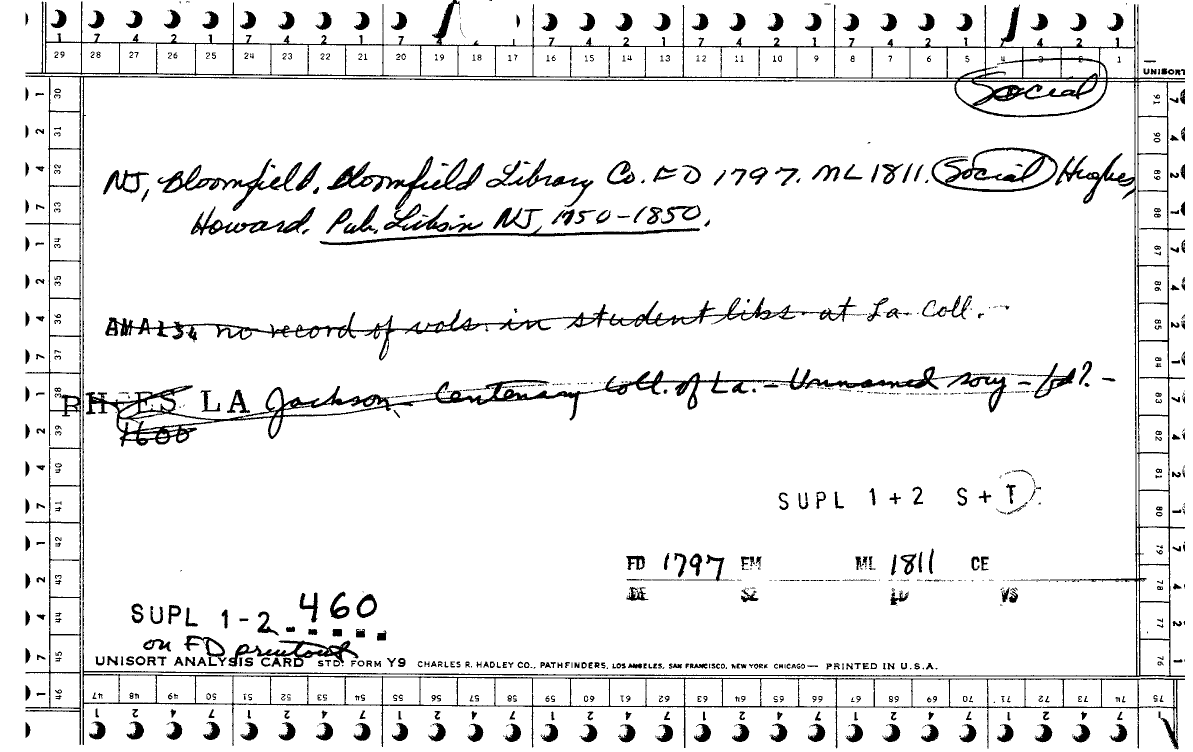 1 7 4 2 1 7 4 2 1 7 4 2 1 7 4 2 1 7 4 2 1 7 4 2 1
29 28 27 26 25 24 23 22 21 20 19 18 17 16 15 14 13 12 11 10 9 8 7 6 5 4 3 2 1
UNISORT
Social
NJ, Bloomfield. Bloomfield Library Co. FD 1797. ML 1811. Social Hughes,
Howard. Pub. Libs in NJ, 1750-1850.
no record of vols. in student libs. at La. Coll.
LA Jackson - Centenary Coll. of La. - Unnamed socy - fd? -
1600
SUPL 1+2 S+T
FD 1797 EM ML 1811 CE
DE SZ LD VS
SUPL 1-2 460
on FD printout
UNISORT ANALYSIS CARD STD. FORM Y9 CHARLES R. HADLEY CO., PATHFINDERS, LOS ANGELES, SAN FRANCISCO, NEW YORK CHICAGO — PRINTED IN U.S.A.
30 31 32 33 34 35 36 37 38 39 40 41 42 43 44 45 46
91 90 89 88 87 86 85 84 83 82 81 80 79 78 77 76 75
47 48 49 50 51 52 53 54 55 56 57 58 59 60 61 62 63 64 65 66 67 68 69 70 71 72 73 74